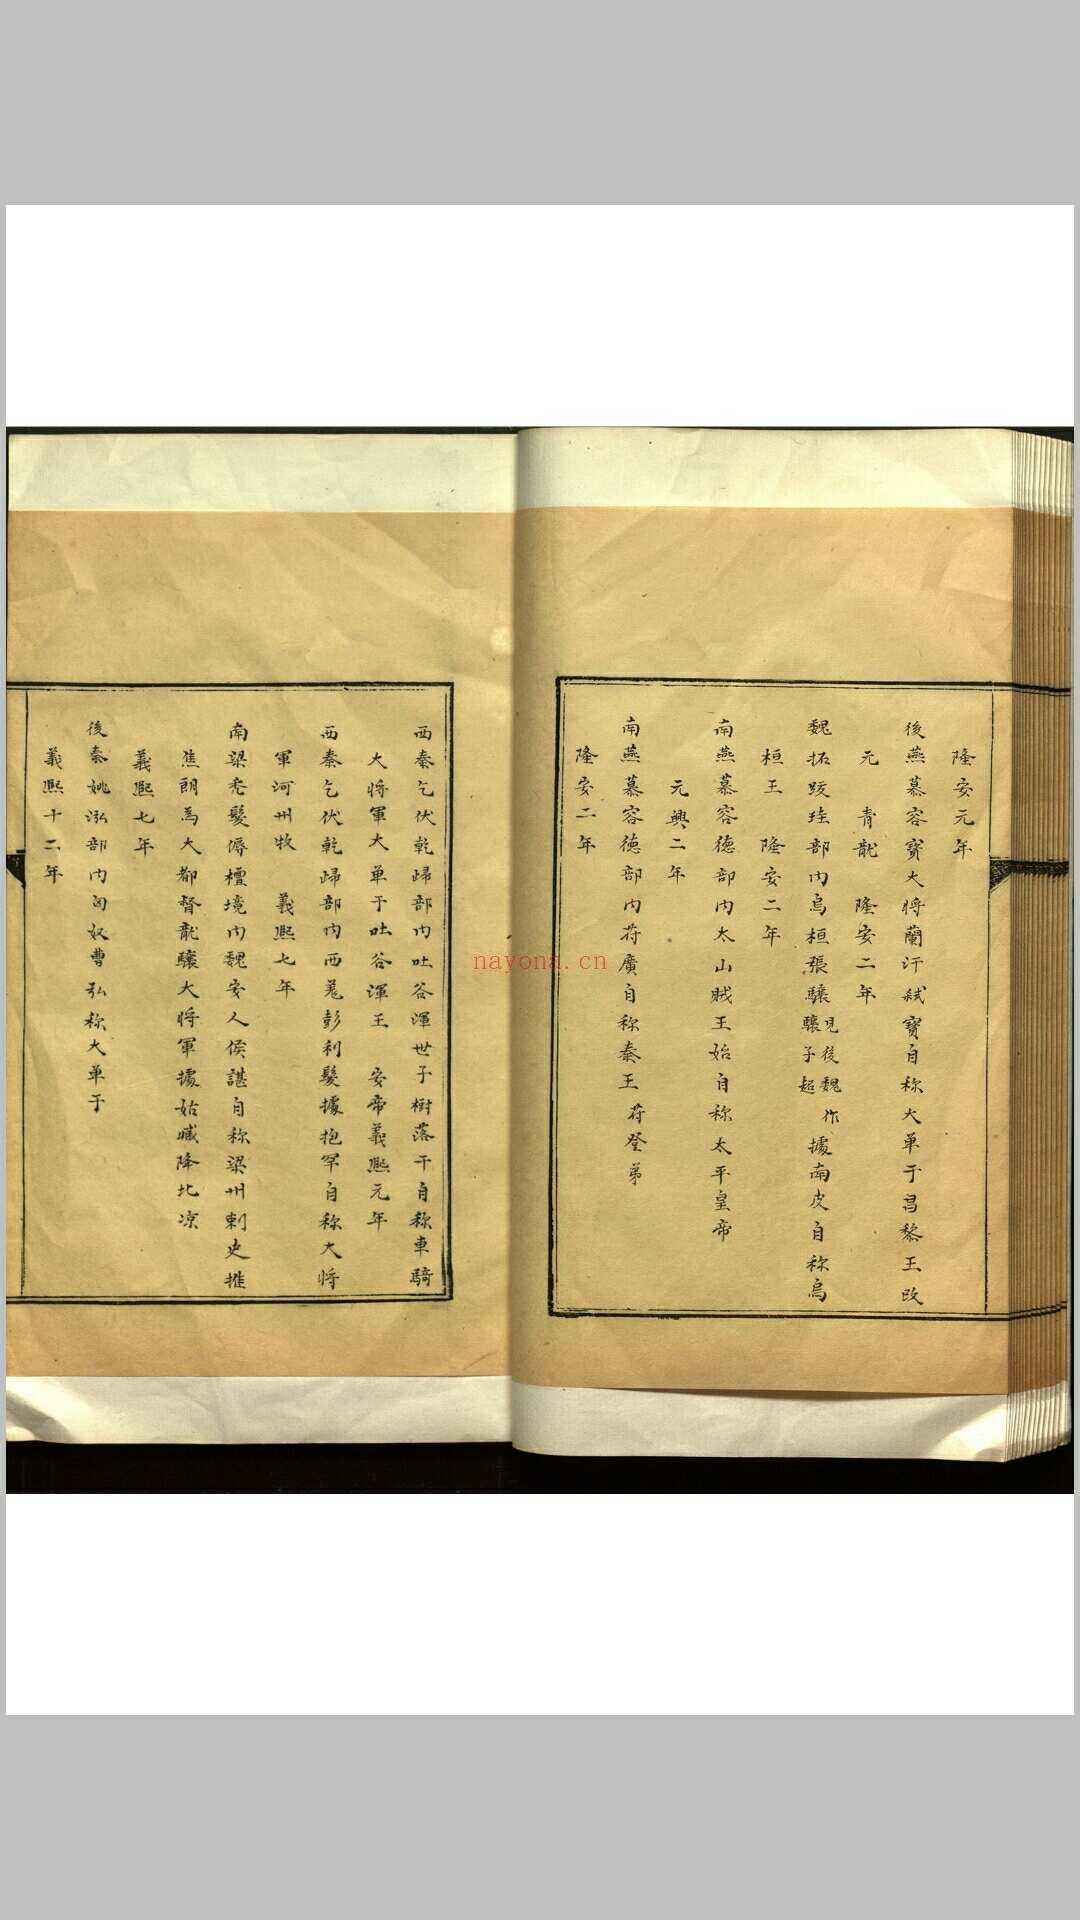 隆安元年
後燕慕容寶大將蘭汗弑寶自称大单于昌黎王改
元 青龍 隆安二年
魏拓跋珪部内烏桓張驤見後魏作驤子超據南皮自称烏
桓王 隆安二年
南燕慕容德部内太山賊王始自称太平皇帝
元興二年
南燕慕容德部内苻廣自称秦王 苻登弟
隆安二年
西秦乞伏乾歸部内吐谷渾世子樹落干自称車騎
大將軍大单于吐谷渾王 安帝義熙元年
西秦乞伏乾歸部内西羗彭利髮據抱罕自称大將
軍河州牧 義熙七年
南梁秃髮傉檀境内魏安人侯諶自称梁州刺史推
焦朗為大都督龍驤大將軍據姑臧降北凉
義熙七年
後秦姚泓部内匈奴曹弘称大单于
義熙十二年
nayona.cn